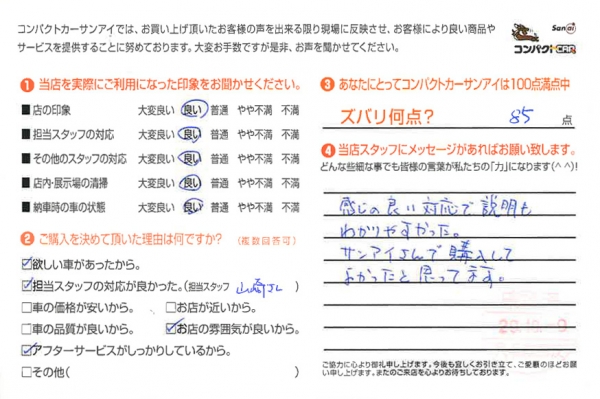 コンパクトカーサンアイでは、お買い上げ頂いたお客様の声を出来る限り現場に反映させ、お客様により良い商品や
サービスを提供することに努めております。大変お手数ですが是非、お声を聞かせてください。
Sanai
コンパクトCAR
1 当店を実際にご利用になった印象をお聞かせください。
■店の印象 大変良い 良い 普通 やや不満 不満
■担当スタッフの対応 大変良い 良い 普通 やや不満 不満
■その他のスタッフの対応 大変良い 良い 普通 やや不満 不満
■店内・展示場の清掃 大変良い 良い 普通 やや不満 不満
■納車時の車の状態 大変良い 良い 普通 やや不満 不満
2 ご購入を決めて頂いた理由は何ですか? (複数回答可)
☑欲しい車があったから。
☑担当スタッフの対応が良かった。(担当スタッフ 山崎さん )
□車の価格が安いから。 □お店が近いから。
□車の品質が良いから。 ☑お店の雰囲気が良いから。
☑アフターサービスがしっかりしているから。
□その他( )
3 あなたにとってコンパクトカーサンアイは100点満点中
ズバリ何点? 85 点
4 当店スタッフにメッセージがあればお願い致します。
どんな些細な事でも皆様の言葉が私たちの「力」になります(^ ^)!
感じの良い対応で説明も
わかりやすかった。
サンアイさんで購入して
よかったと思ってます。
ご協力に心より御礼申し上げます。今後も宜しくお引き立て、ご愛顧のほどお願
い申し上げます。またのご来店を心よりお待ちしております。